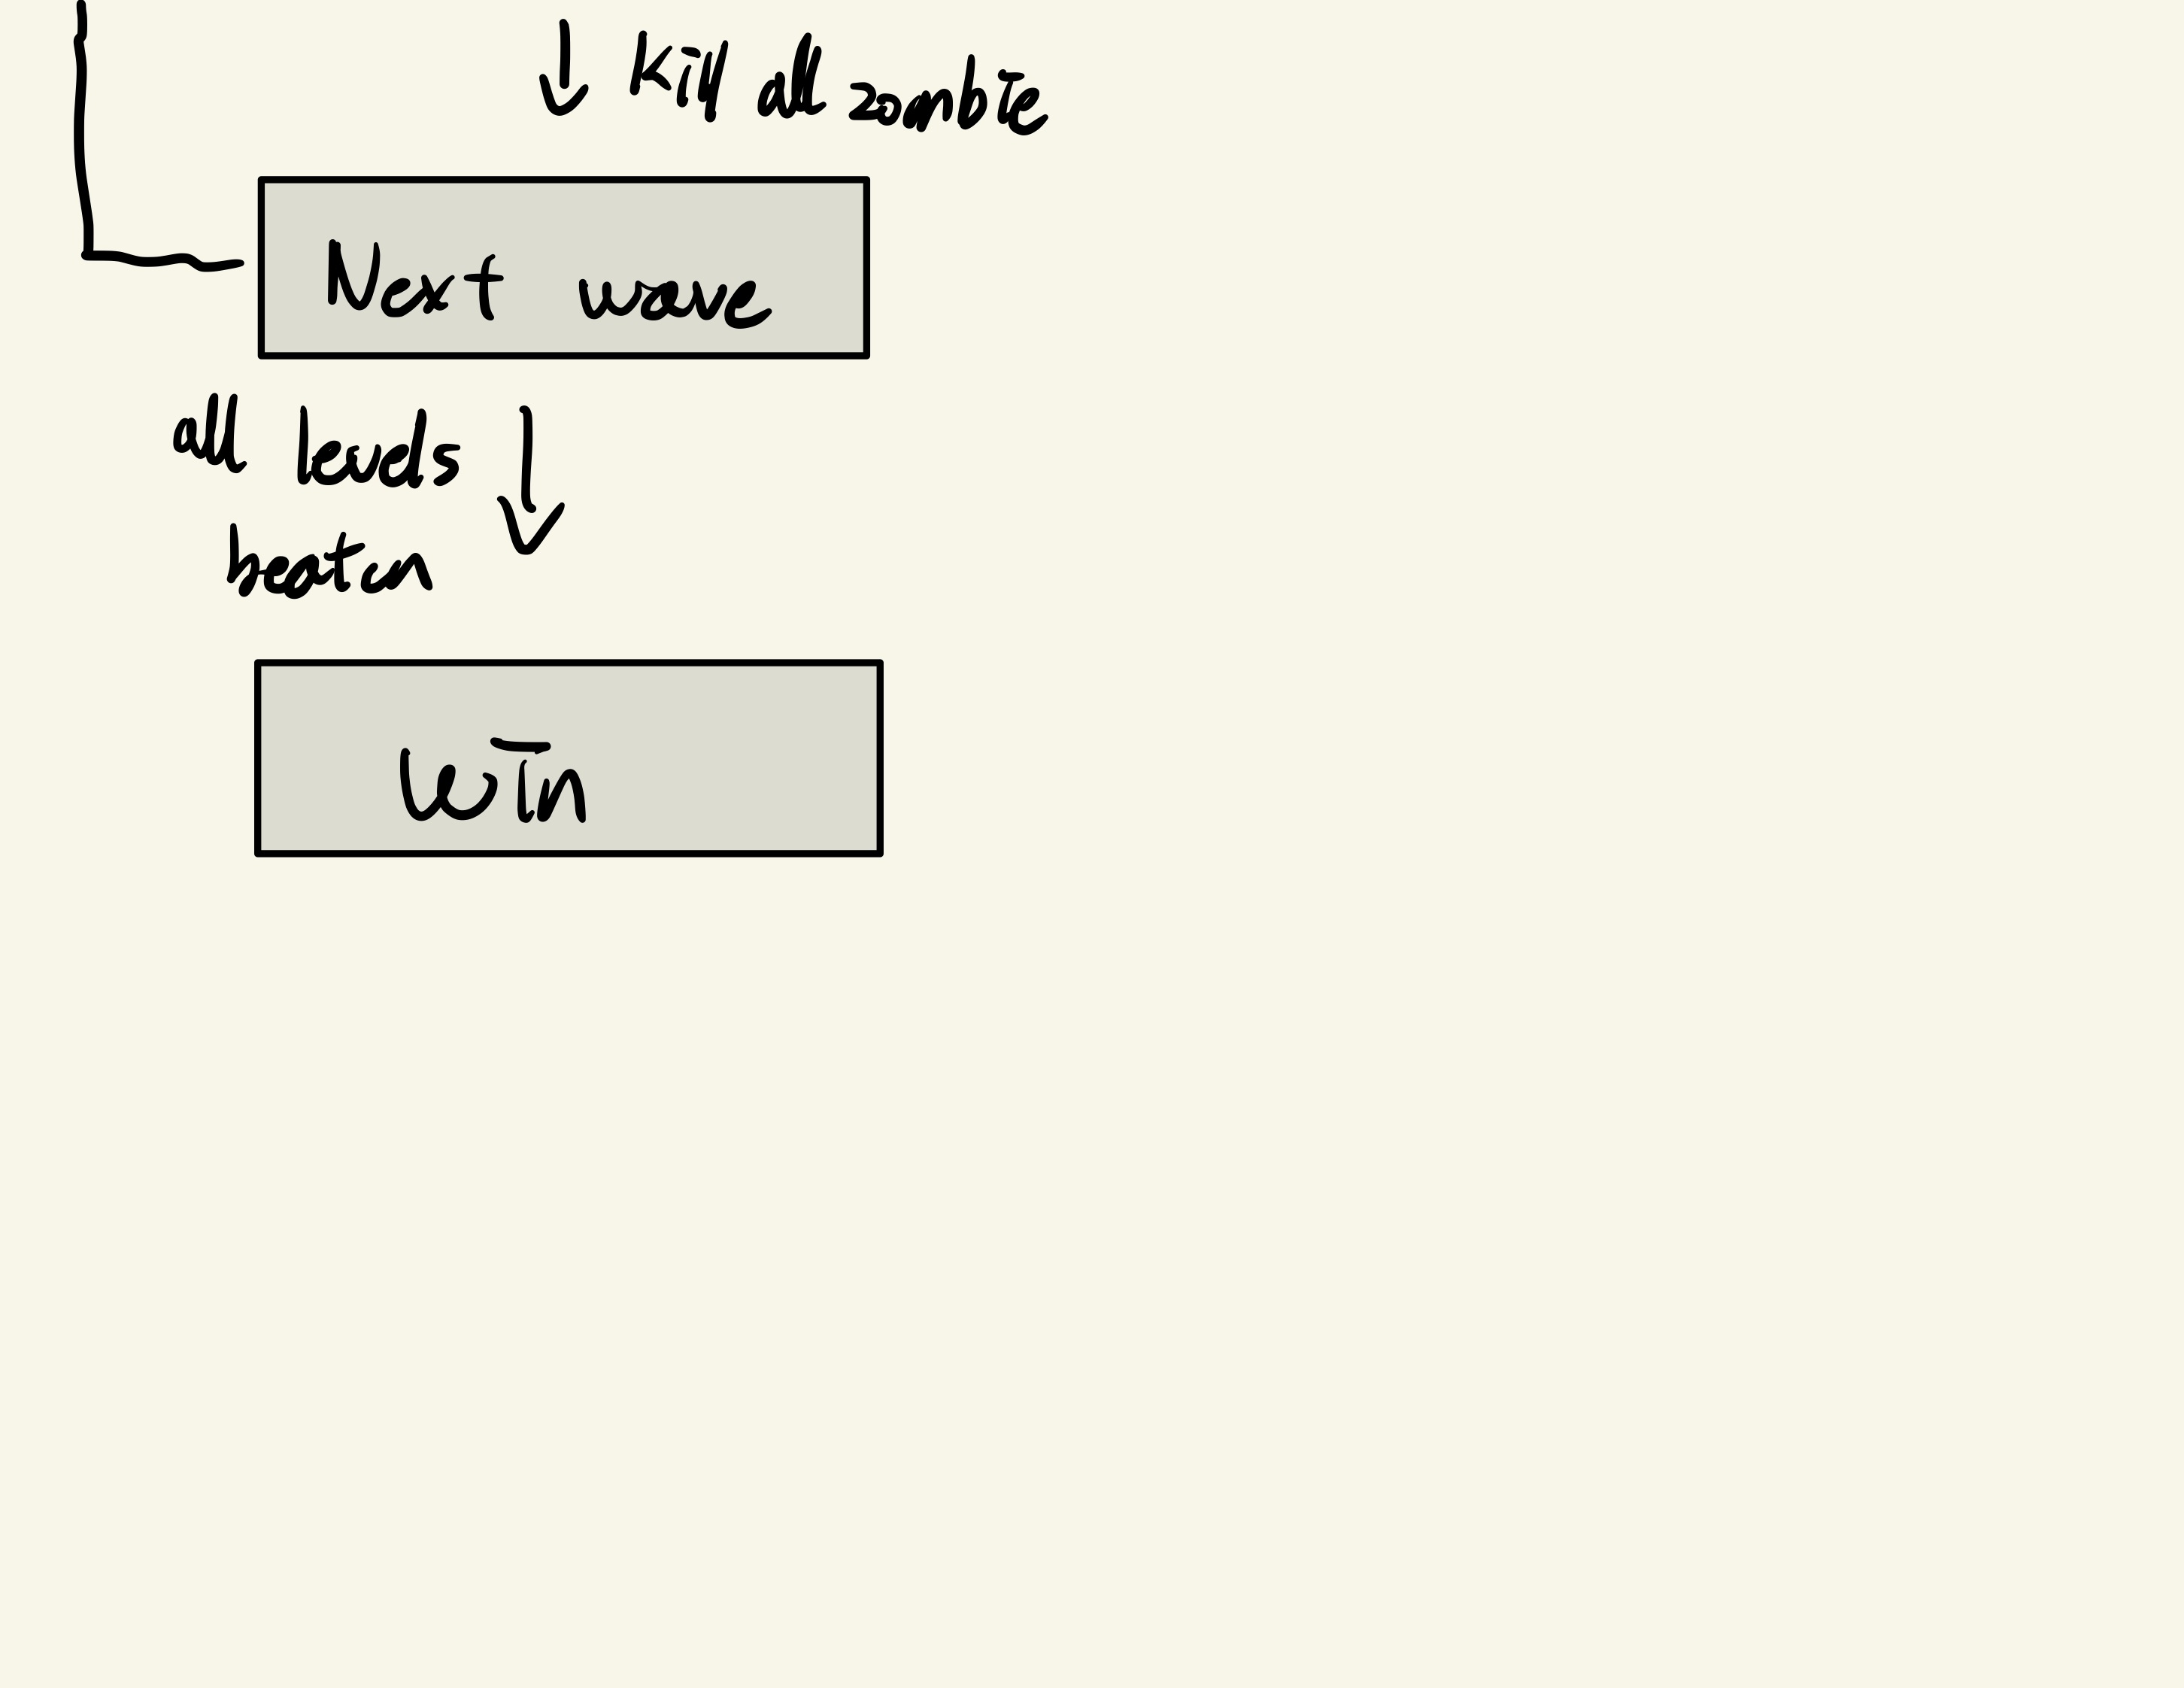 Kill all zombie
Next wave
all levels
beaten
win